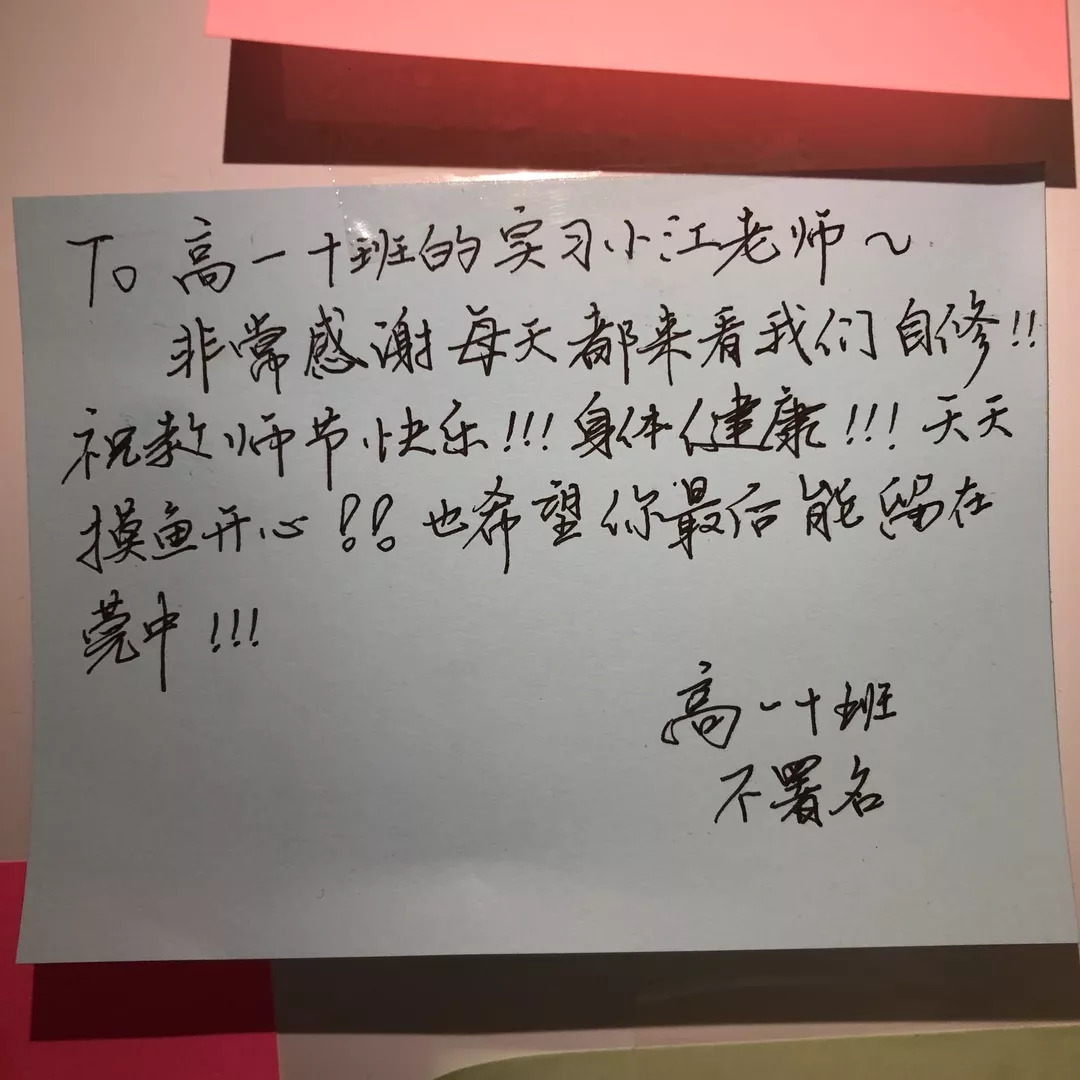 To 高一十班的实习小江老师~
非常感谢每天都来看我们自修!!
祝教师节快乐!!!身体健康!!!天天
摸鱼开心!!也希望你最后能留在
莞中!!!
高一十班
不署名